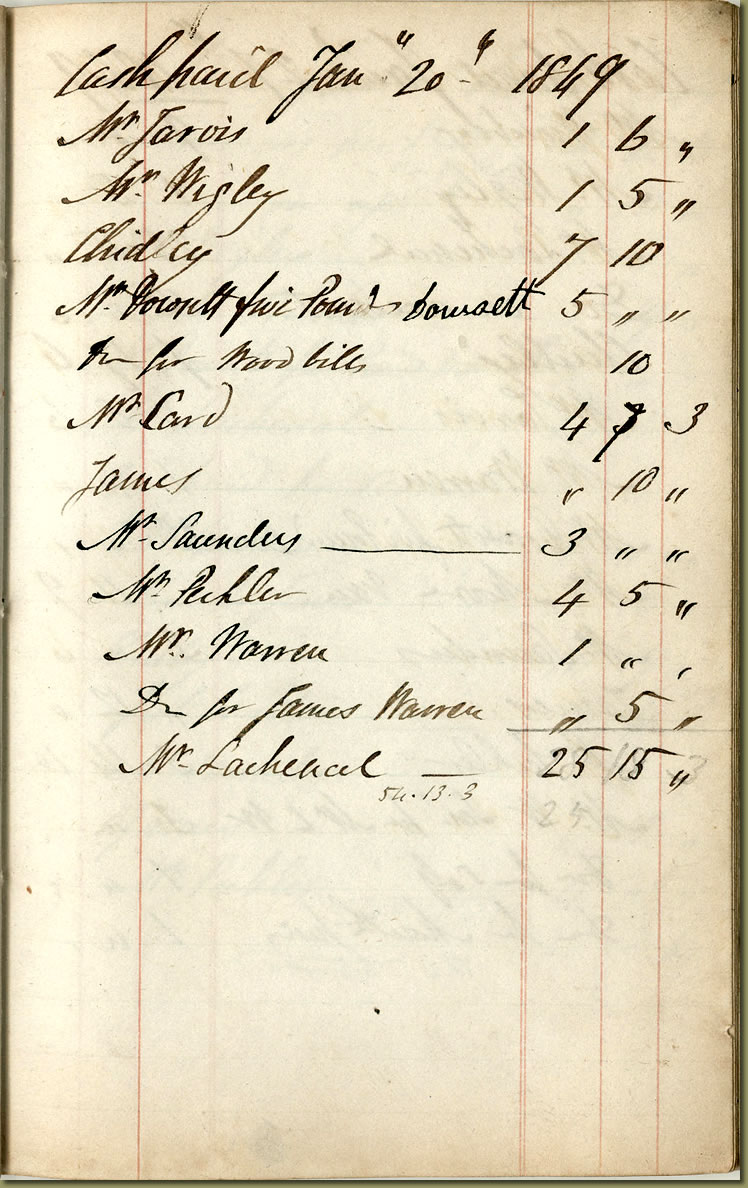 Cash paid Jan " 20 " 1849
Mr Jarvis 1 6 "
Mr Wigley 1 5 "
Chidley 7 10
Mr Dowsett five Pounds Dowsett 5 " "
Do for Wood bills 10
Mr Card 4 3
James " 10 "
Mr Saunders — 3 " "
Mr 4 5 "
Mr. Warren 1 " "
Do for James Warren " 5 "
Mr Lachenal — 25 15 "
54.13.3